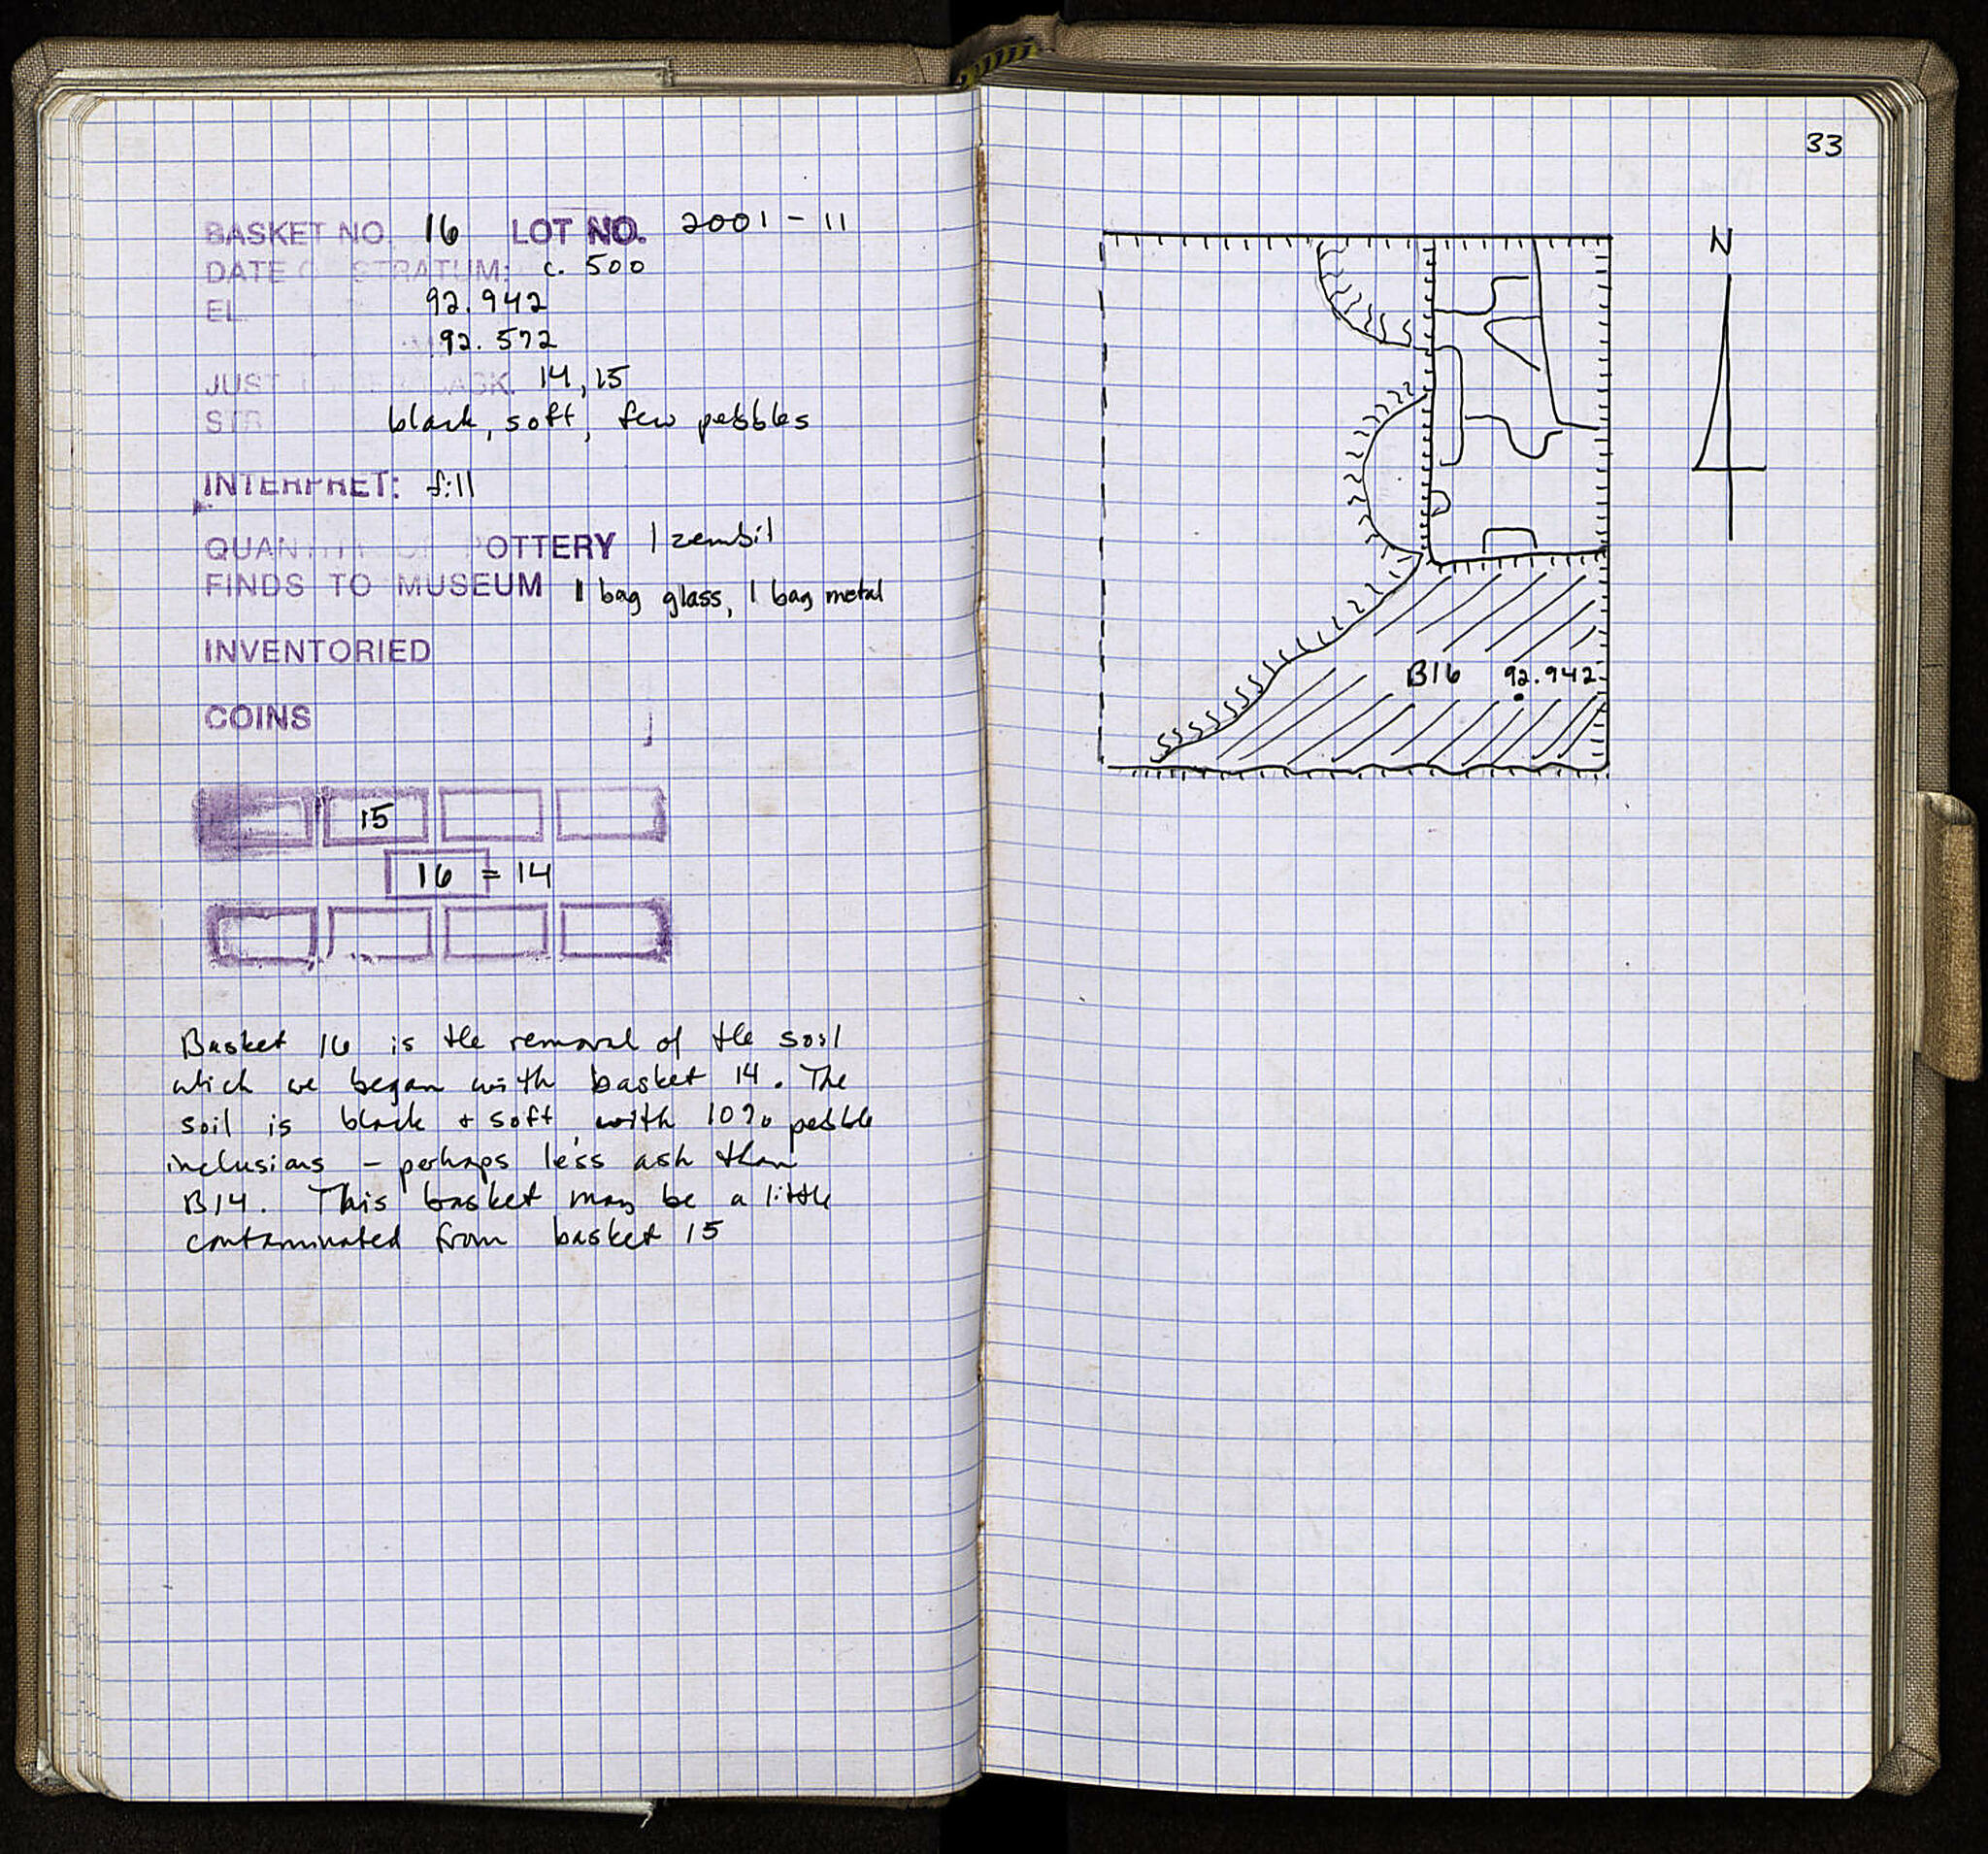 BASKET NO. 16 LOT NO. 2001 - 11
DATE STRATUM: c. 500
EL 92.942
92.572
JUST 14, 15
STR black, soft, few pebbles
INTERPRET: fill
QUANTITY OF POTTERY 1 zembil
FINDS TO MUSEUM 1 bag glass, 1 bag metal
INVENTORIED
COINS
15
16 = 14
Basket 16 is the removal of the soil
which we began with basket 14. The
soil is black + soft, with 10% pebble
inclusions - perhaps less ash than
B14. This basket may be a little
contaminated from basket 15
33
N
B16 92.942